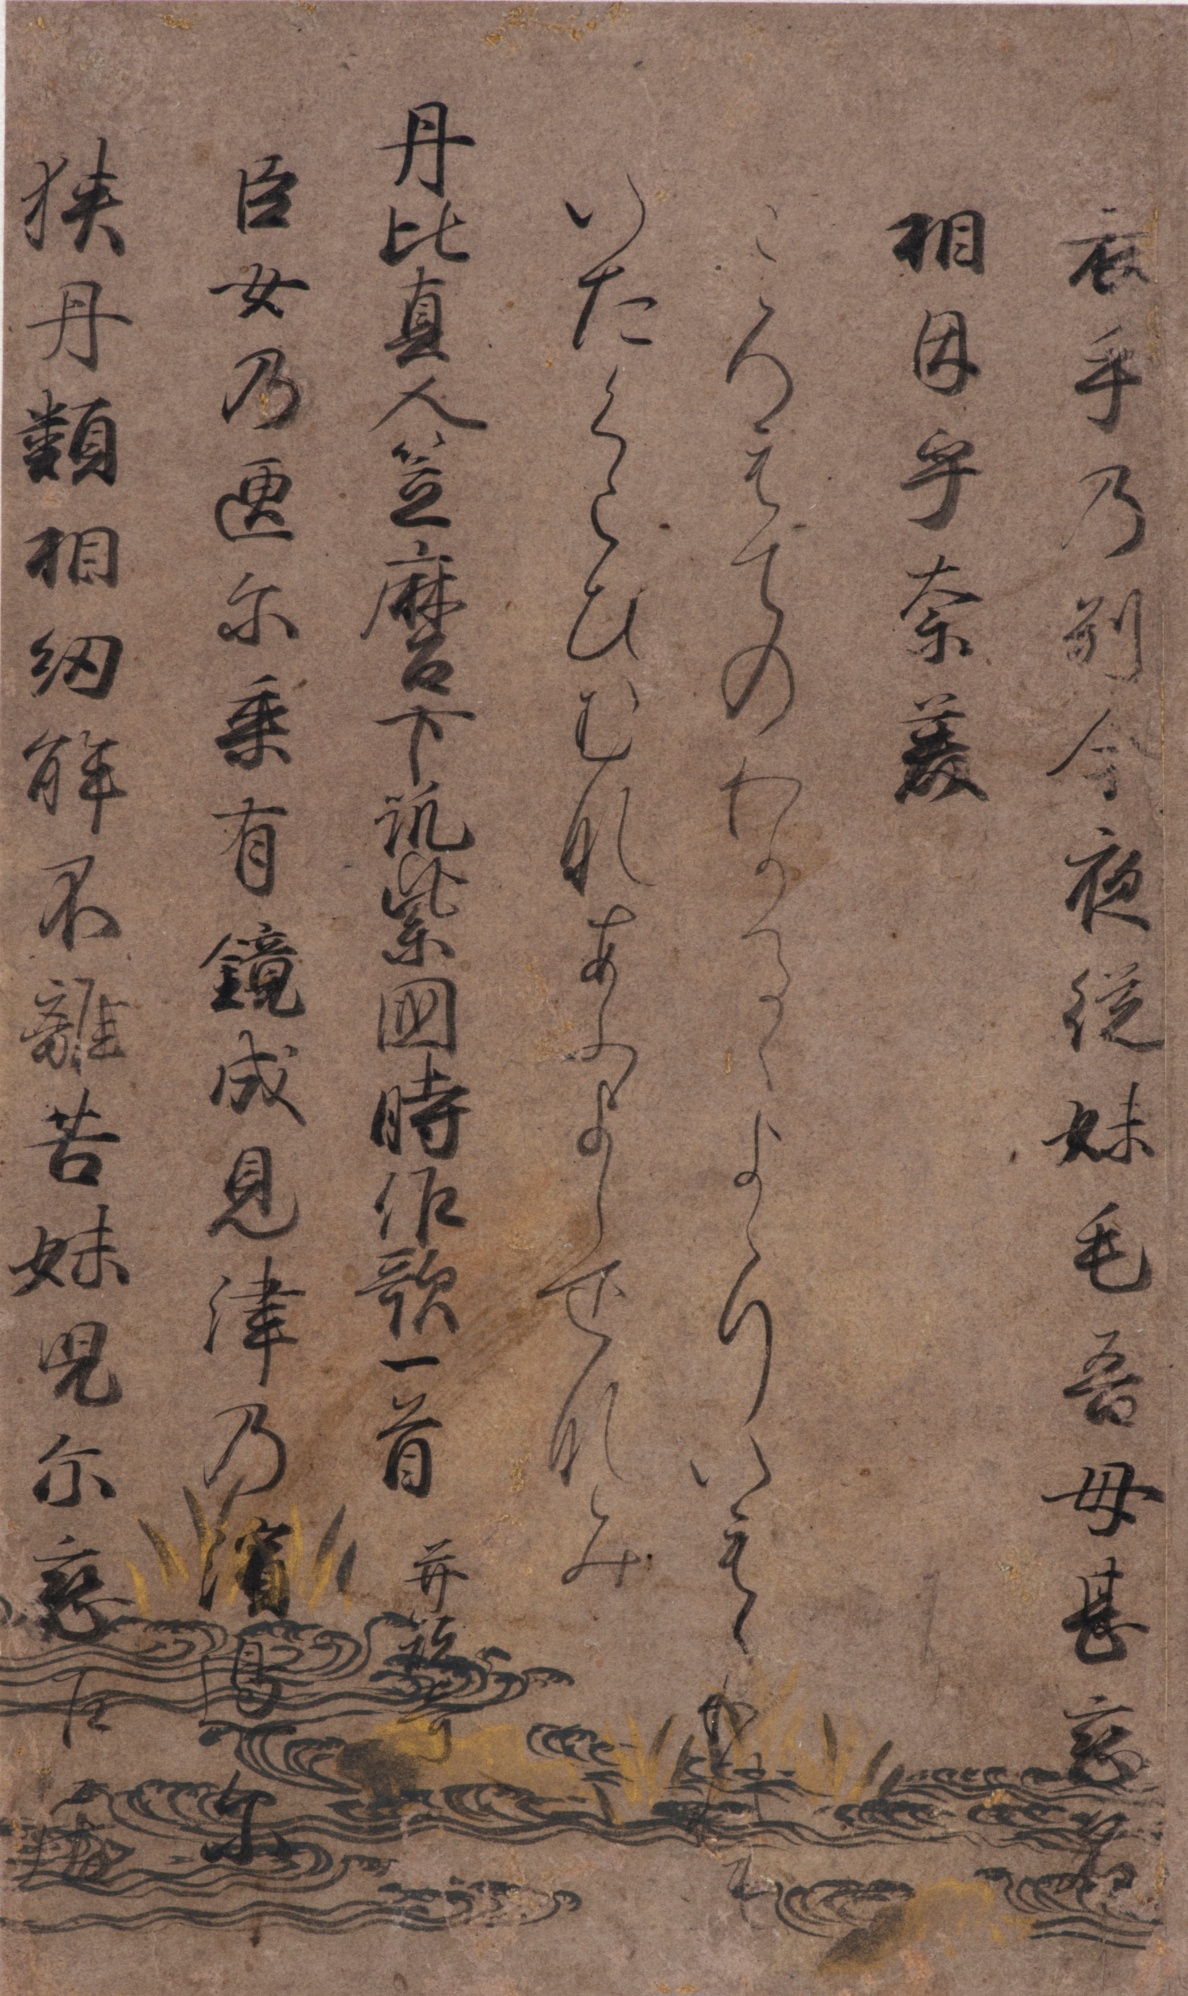 衣手乃別今夜従妹毛吾母甚戀名
相因乎奈美
ころもてのわかるゝよりいもゝわれも
いたくこひむなあふよしをなみ
丹比真人笠麿下筑紫國時作歌一首 并短哥
臣女乃匣尓乗有鏡成見津乃濱邊尓
狭丹類相紐解不離苦妹児尓戀乍